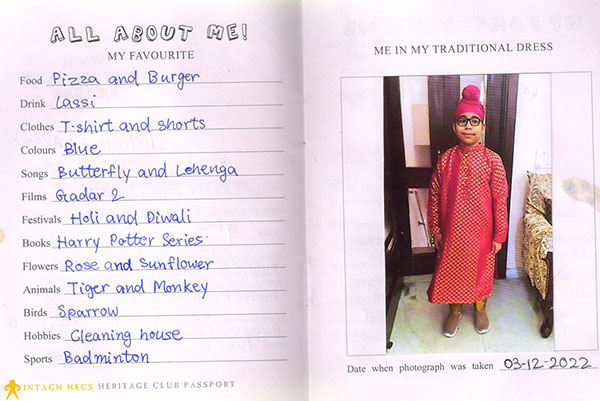 ALL ABOUT ME!
MY FAVOURITE
Food Pizza and Burger
Drink Lassi
Clothes T-shirt and shorts
Colours Blue
Songs Butterfly and Lehenga
Films Gadar 2
Festivals Holi and Diwali
Books Harry Potter Series
Flowers Rose and Sunflower
Animals Tiger and Monkey
Birds Sparrow
Hobbies Cleaning house
Sports Badminton
INTACH HECS HERITAGE CLUB PASSPORT
ME IN MY TRADITIONAL DRESS
Date when photograph was taken 03-12-2022